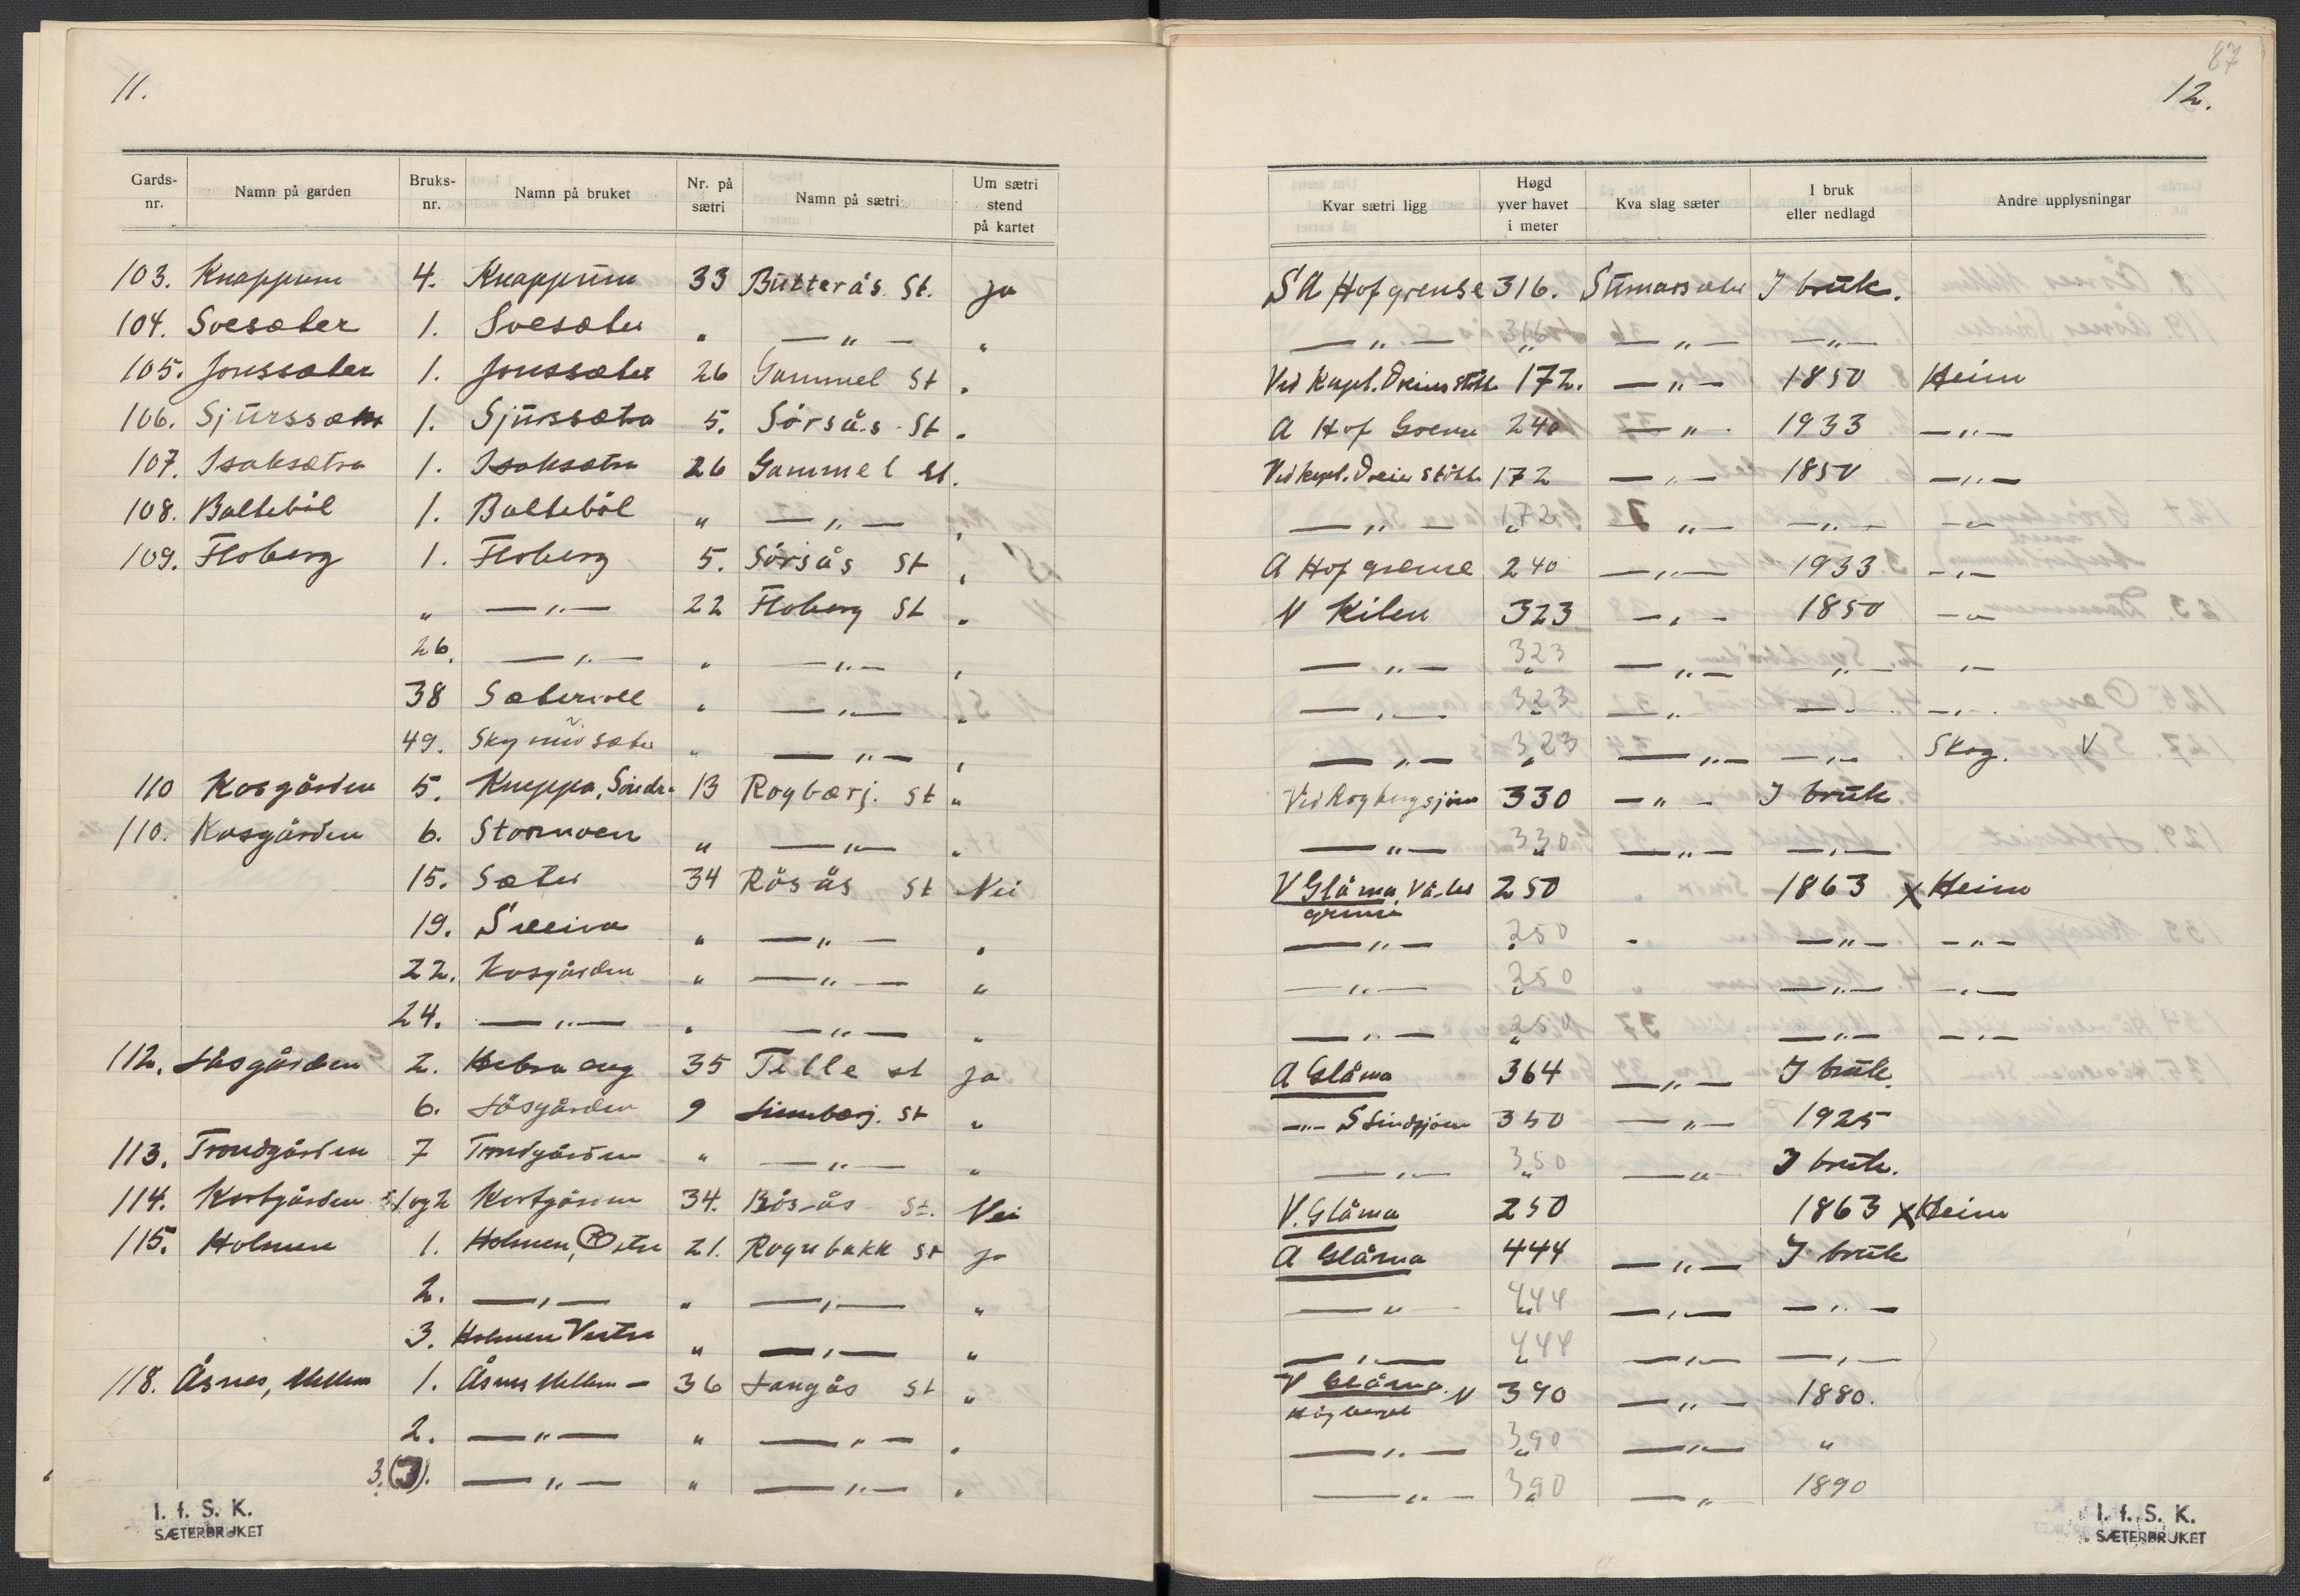 11.
Gards-nr. Namn på garden Bruks-nr. Namn på bruket Nr. på sætri Namn på sætri Um sætri stend på kartet
103. Knappum 4. Knappum 33 Butterås St. ja
104. Svesæter 1. Svesæter " —"— "
105. Jonssæter 1. Jonssæter 26 Gammel St "
106. Sjurssætra 1. Sjurssætra 5. Sörsås St "
107. Isaksætra 1. Isaksætra 26 Gammel St.
108. Balteböl 1. Balteböl " —"— "
109. Floberg 1. Floberg 5. Sörsås St "
" —"— 22 Floberg St "
26. —"— " —"— "
38 Sætervoll " —"— "
49. " —"— "
110 Kosgården 5. Kneppa, Söndre 13 Rogbærj. St "
110. Kosgården 6. Stormoen " —"— "
15. Sæter 34 Rösås St Nei
19. " —"— "
22. Kosgården " —"— "
24. —"— " —"— "
112. Låsgården 2. 35 Tille st ja
6. Låsgården 9 Linnbærj. St "
113. Trondgården 7 Trondgården " —"— "
114. Kortgården 1 og 2 Kortgården 34. Rösås St. Nei
115. Holmen 1. Holmen, Østre 21. Rognbakk St ja
2. —"— " —"— "
3. Holmen Vestre " —"— "
118. Åsnes, Mellem 1. Åsnes Mellem — 36 Langås St "
2. —"— " —"— "
3. (3). —"— " —"— "
I. f. S. K.
SÆTERBRUKET
87
12.
Kvar sætri ligg Høgd yver havet i meter Kva slag sæter I bruk eller nedlagd Andre upplysningar
SA Hof grense 316. Sumarsæter I bruk.
—"— 316 " —"— —"—
Ved Kapt. Dreiers Støtte 172. —"— 1850 Heim
A Hof Grense 240 —"— 1933 —"—
Ved Kapt. Dreiers Støtte 172 —"— 1850 —"—
—"— 172 " —"— —"— —"—
A Hof grense 240 —"— 1933 —"—
N Kilen 323 —"— 1850 —"—
—"— 323 " —"— " —"—
—"— 323 " —"— —"— —"—
—"— 323 " —"— —"— Skog. V
Ved Rogbergsjøen 330 —"— I bruk
—"— 330 " —"— —"—
V Glåma, Våler grense 250 1863 x Heim
—"— 250 " " —"— —"—
—"— 250 " —"— —"—
—"— 250 " —"— —"—
A Glåma 364 —"— I bruk.
—"— S Lindtjörn 350 —"— 1925
—"— 350 " —"— I bruk.
V. Glåma 250 1863 x Heim
A Glåma 444 —"— I bruk
—"— 444 " —"— —"—
—"— 444 " —"— —"—
V Glåma. N Högberget 390 —"— 1880.
—"— 390 " —"— "
—"— 390 " —"— 1890
I. f. S. K.
SÆTERBRUKET